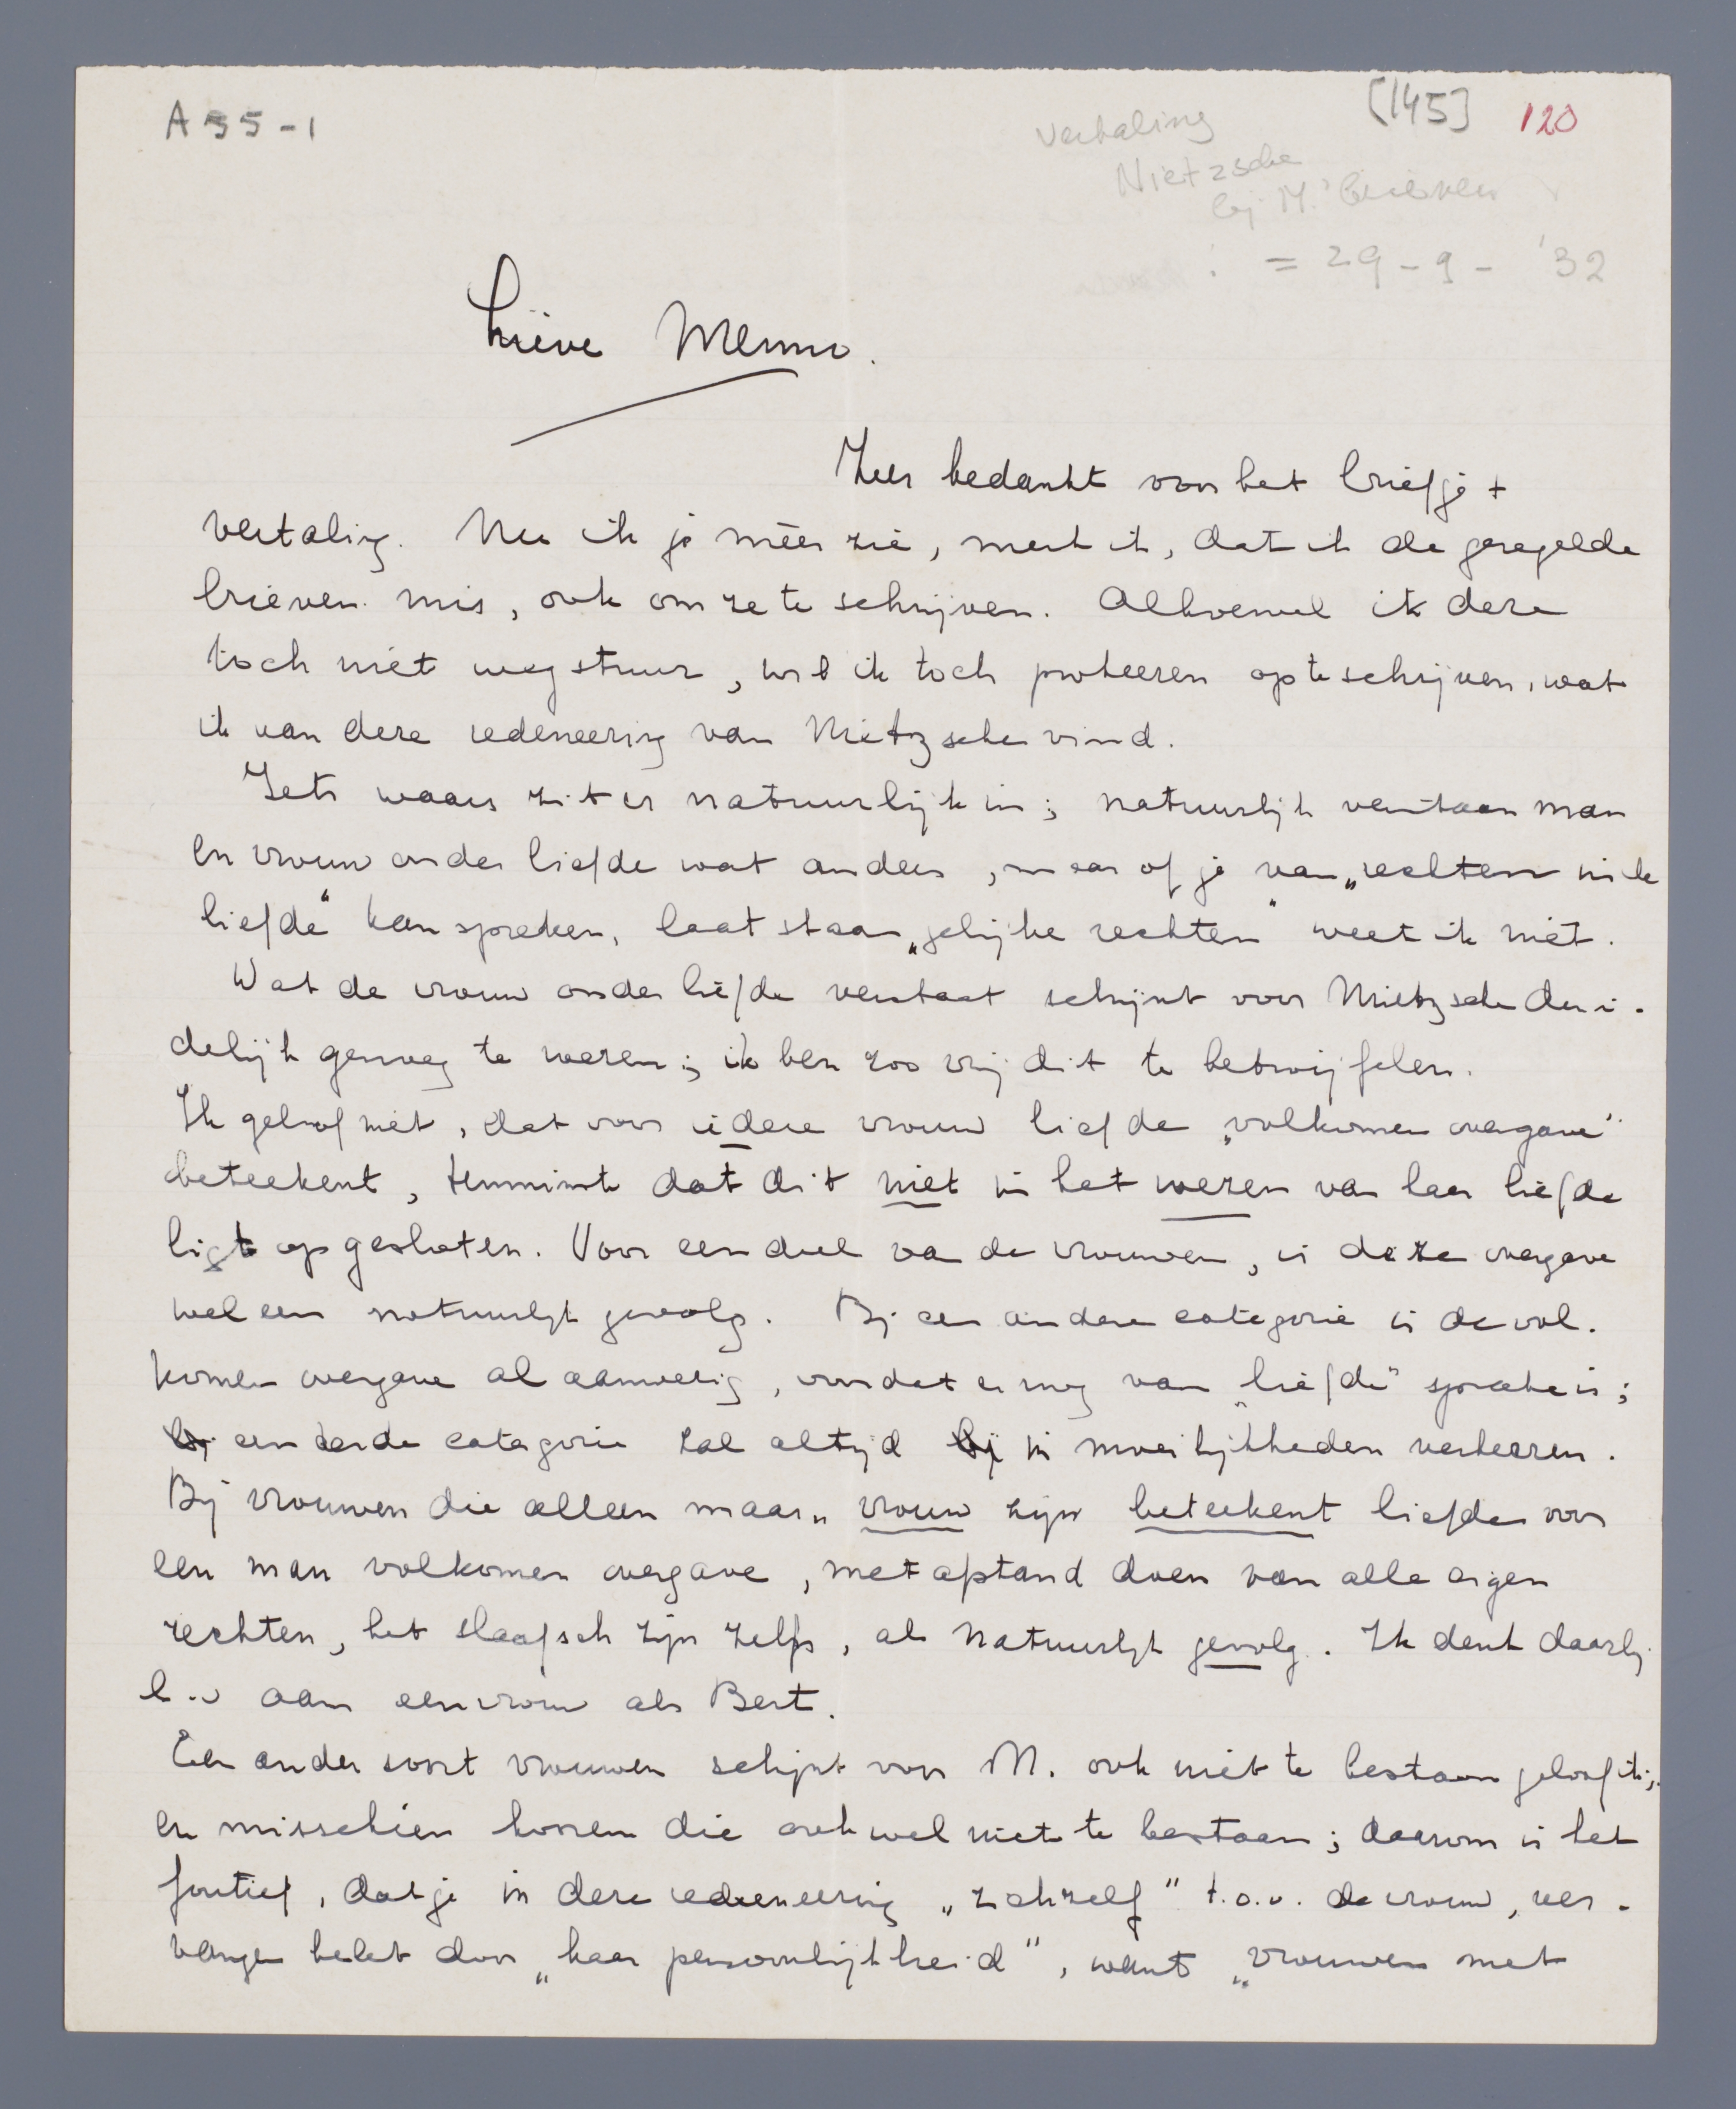 A 55 - 1
[145] 120
vertaling
Nietzsche
bij M.' brieven
: = 29 - 9 - '32
Lieve Menno.
Zeer bedankt voor het briefje +
vertaling. Nu ik je méér zie, merk ik, dat ik de geregelde
brieven mis, ook om ze te schrijven. Alhoewel ik deze
toch niet wegstuur, wil ik toch probeeren op te schrijven, wat
ik van deze redeneering van Nietzsche vind.
Iets waars zit er natuurlijk in; natuurlijk verstaan man
en vrouw onder liefde wat anders, maar of je van „rechten in de
liefde" kan spreken, laat staan „gelijke rechten" weet ik niet.
Wat de vrouw onder liefde verstaat schijnt voor Nietzsche dui-
delijk genoeg te wezen; ik ben zoo vrij dit te betwijfelen.
Ik geloof niet, dat voor iedere vrouw liefde „volkomen overgave"
beteekent, tenminste dat dit niet in het wezen van haar liefde
ligt opgesloten. Voor een deel van de vrouwen, is deze overgave
wel een natuurlijk gevolg. Bij een andere categorie is de vol-
komen overgave al aanwezig, voordat er nog van „liefde" sprake is;
een derde categorie zal altijd in moeilijkheden verkeeren.
Bij vrouwen die alleen maar „vrouw zijn beteekent liefde voor
een man volkomen overgave, met afstand doen van alle eigen
rechten, het slaafsch zijn zelfs, als natuurlijk gevolg. Ik denk daarbij
b.v aan een vrouw als Bert.
Een ander soort vrouwen schijnt voor N. ook niet te bestaan geloof ik;
en misschien hooren die ook wel niet te bestaan; daarom is het
foutief, dat je in deze redeneering „zichzelf" t.o.v. de vrouw, ver-
vangen hebt door „haar persoonlijkheid", want „vrouwen met